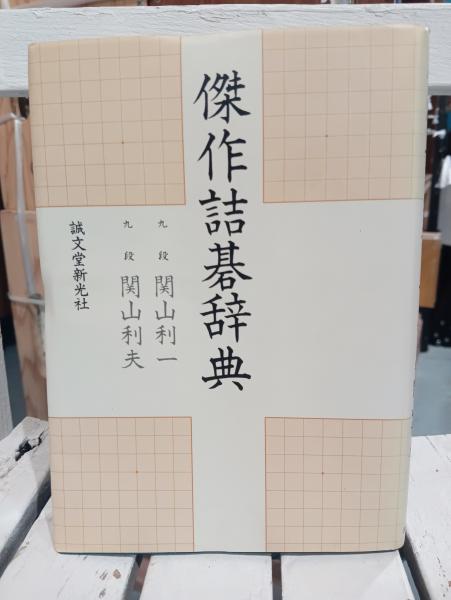 傑作詰碁辞典
九段 関山利一
九段 関山利夫
誠文堂新光社